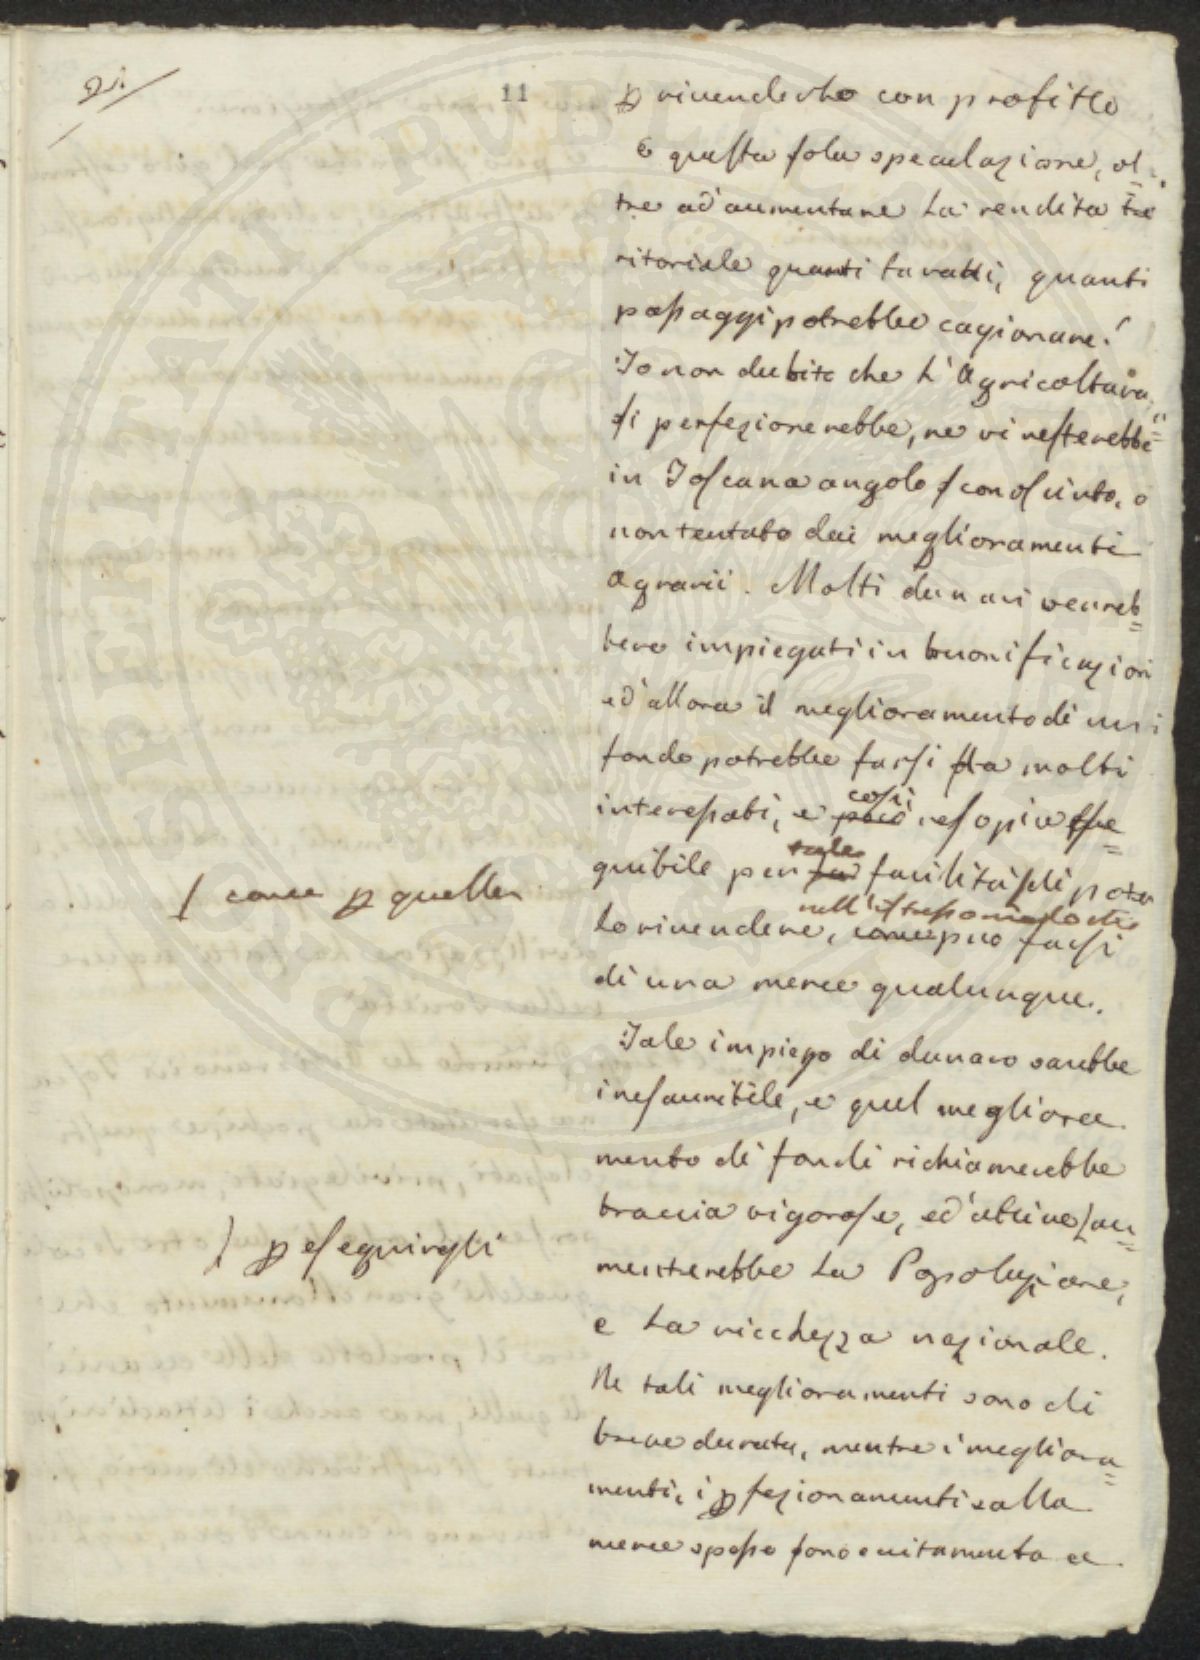 11
per rivenderlo con profitto
e questa sola speculazione, ol-
tre ad aumentare La rendita te
ritoriale quanti baratti, quanti
passaggi potrebbe cagionare!
Io non dubito che L'Agricoltura
si perfezionerebbe, ne vi resterebbe
in Toscana angolo sconosciuto, o
non tentato dai meglioramenti
Agrarii. Molti denari verreb=
bero impiegati in buonificazioni
ed allora il meglioramento di un
fondo potrebbe farsi da molti
cosi
interessati, e reso piu ese=
tale
guibile per facilità di poter
nell'istesso modo che
lo rivendere, come puo farsi
/ come per quella
di una merce qualunque.
Tale impiego di denaro sarebbe
inesauribile, e quel megliora
mento di fondi richiamerebbe
braccia vigorose, ed attive / au=
/ per eseguirgli
menterebbe La Popolazione,
e La ricchezza nazionale.
Ne tali meglioramenti sono di
breve durata, mentre i megliora=
menti, i perfezionamenti alla
merce spesso sono unitamente a